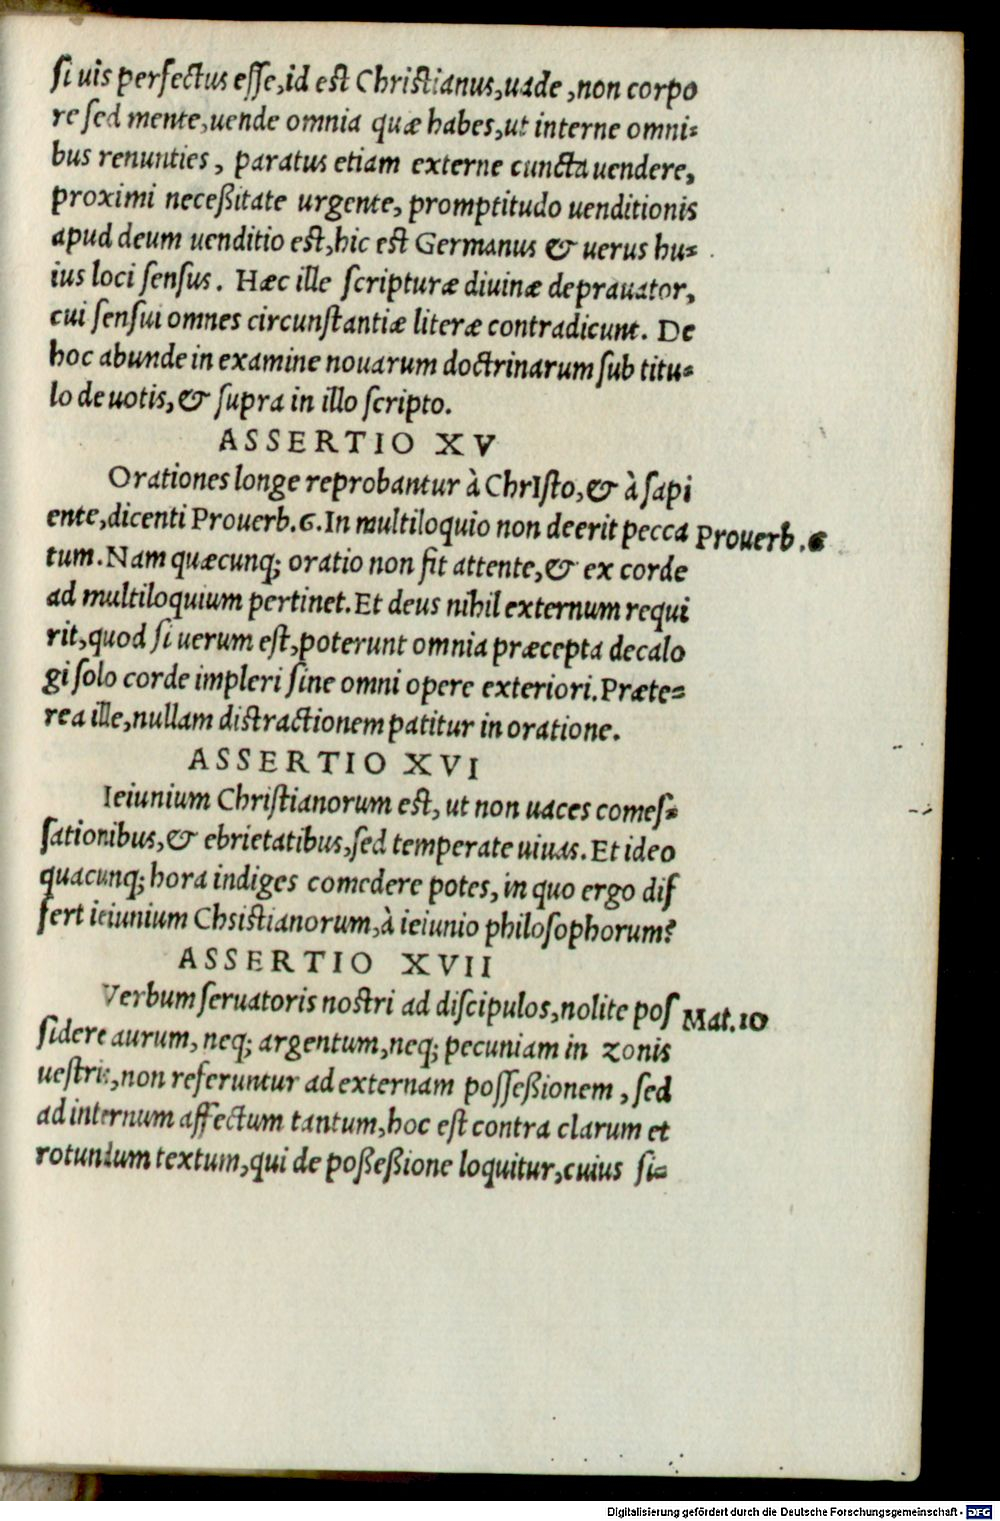 ſi uis perfectus eſſe,id est Chriſtianus,uade ,non corpo
re ſed mente,uende omnia quæ habes,ut interne omni⸗
bus renunties, paratus etiam externe cuncta uendere,
proximi neceßitate urgente, promptitudo uenditionis
apud deum uenditio eſt,hic eſt Germanus & uerus hu⸗
ius loci ſenſus. Hæc ille ſcripturæ diuinæ deprauator,
cui ſenſui omnes circunſtantiæ literæ contradicunt. De
hoc abunde in examine nouarum doctrinarum ſub titu⸗
lo de uotis,& ſupra in illo ſcripto.
ASSERTIO XV
Orationes longe reprobantur à ChrIſto,& à ſapi
ente,dicenti Prouerb.6.In multiloquio non deerit pecca
Prouerb.6
tum.Nam quæcunq; oratio non fit attente,& ex corde
ad multiloquium pertinet.Et deus nihil externum requi
rit,quod ſi uerum eſt,poterunt omnia præcepta decalo
gi ſolo corde impleri ſine omni opere exteriori.Præte⸗
rea ille,nullam distractionem patitur in oratione.
ASSERTIO XVI
Ieiunium Chriſtianorum est, ut non uaces comeſ⸗
ſationibus,& ebrietatibus,ſed temperate uiuas.Et ideo
quacunq; hora indiges comedere potes, in quo ergo diſ
fert ieiunium Chsiſtianorum,à ieiunio philoſophorum?
ASSERTIO XVII
Verbum ſeruatoris nostri ad diſcipulos,nolite poſ
Mat.10
ſidere aurum, neq; argentum,neq; pecuniam in zonis
uestris,non referuntur ad externam poſſeßionem, ſed
ad internum affectum tantum,hoc eſt contra clarum et
rotundum textum,qui de poßeßione loquitur,cuius ſi⸗
Digitalisierung gefördert durch die Deutsche Forschungsgemeinschaft - DFG